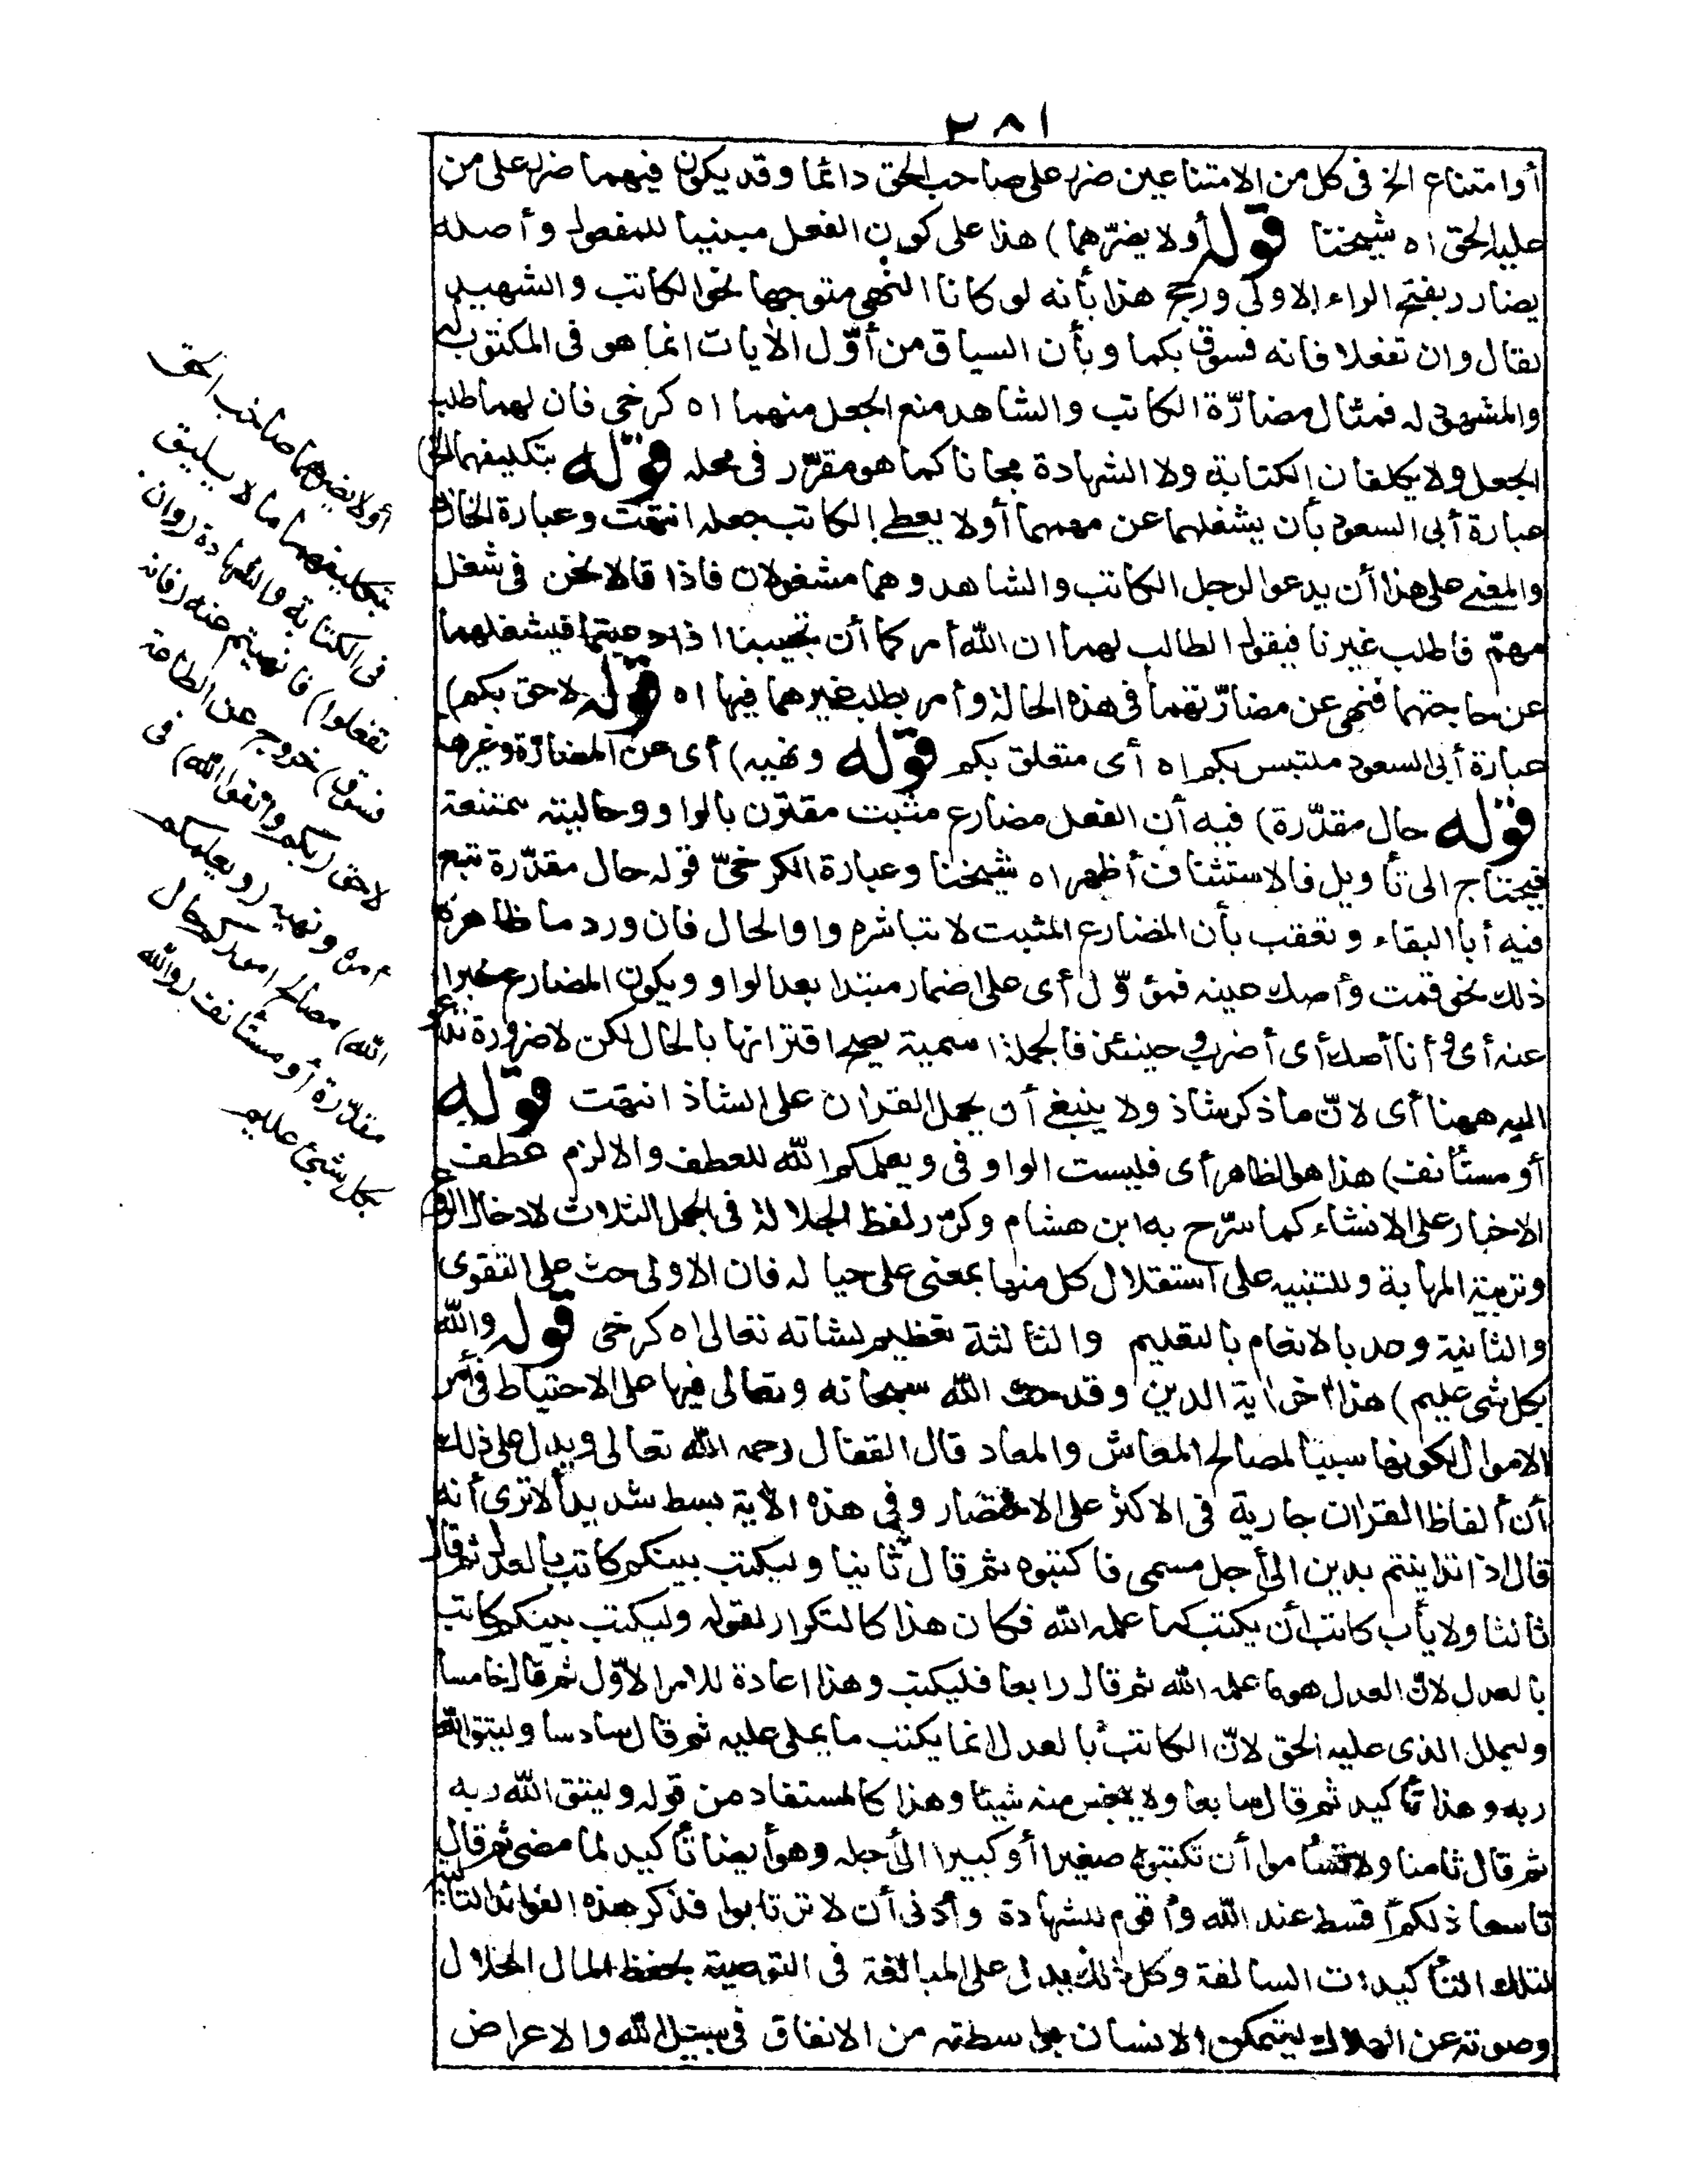 ٢٨١
أوامتناع الخ فى كل من الامتناعين ضرر على صاحب الحق دائما وقد يكون فيهما ضرر على من
عليه الحق اه شيخنا قوله أو لا يضرّهما) هذا على كون الفعل مبنيا للمفعول وأصله
يضارر بفتح الراء الاولى ورجح هذا بأنه لو كانا النهى متوجها نحو الكاتب والشهيد
لقال وان تفعلا فانه فسوق بكما وبأن السياق من أوّل الآيات انما هو فى المكتوب له
والمشهود له فمثال مضارّة الكاتب والشاهد منع الجعل منهما اه كرخى فان لهما طلب
الجعل ولا يكلفان الكتابة ولا الشهادة مجانا كما هو مقرّر فى محله قوله بتكليفهما الخ)
عبارة أبى السعود بأن يشغلهما عن مهمهما أولا يعطى الكاتب جعله انتهت وعبارة الخازن
والمعنى على هذا أن يدعو الرجل الكاتب والشاهد وهما مشغولان فاذا قالا نحن فى شغل
مهمّ فاطلب غيرنا فيقول الطالب لهما ان الله أمركما أن تجيبنا اذا دعيتما فيشغلهما
عن حاجتهما فنهى عن مضارّتهما فى هذه الحالة وأمر بطلب غيرهما فيها اه قوله لاحق بكم)
عبارة أبى السعود ملتبس بكم اه أى متعلق بكم قوله ونهيه) أى عن المضارّة وغيرها
قوله حال مقدّرة) فيه أن الفعل مضارع مثبت مقترن بالواو وحاليته ممتنعة
فيحتاج الى تأويل فالاستئناف أظهر اه شيخنا وعبارة الكرخىّ قوله حال مقدّرة تبع
فيه أبا البقاء وتعقب بأن المضارع المثبت لا تباشره واو الحال فان ورد ما ظاهره
ذلك نحو قمت وأصك عينه فمؤوّل أى على اضمار مبتدا بعد الواو ويكون المضارع خبرا
عنه أى وأنا أصك أى أضرب وحينئذ فالجملة اسمية يصح اقترانها بالحال لكن لا ضرورة تدعو
اليه ههنا أى لانّ ما ذكر شاذ ولا ينبغى أن يحمل القرآن على الشاذ انتهت قوله
أو مستأنف) هذا هو الظاهر أى فليست الواو فى ويعلمكم الله للعطف والا لزم عطف
الاخبار على الانشاء كما صرّح به ابن هشام وكرّر لفظ الجلالة فى الجمل الثلاث لادخال الروع
وتربية المهابة وللتنبيه على استقلال كل منها بمعنى على حياله فان الاولى حث على التقوى
والثانية وعد بالانعام بالتعليم والثالثة تعظيم لشانه تعالى اه كرخى قوله والله
بكل شى عليم) هذا آخر آية الدين وقد حث الله سبحانه وتعالى فيها على الاحتياط فى أمر
الاموال لكونها سببا لمصالح المعاش والمعاد قال القفال رحمه الله تعالى ويدل على ذلك
أن ألفاظ القرآن جارية فى الاكثر على الاختصار وفى هذه الآية بسط شديد ألا ترى أنه
قال اذا تداينتم بدين الى أجل مسمى فاكتبوه ثم قال ثانيا وليكتب بينكم كاتب بالعدل ثم قال
ثالثا ولا يأب كاتب أن يكتب كما علمه الله فكان هذا كالتكرار لقوله وليكتب بينكم كاتب
بالعدل لانّ العدل هو ما علمه الله ثم قال رابعا فليكتب وهذا اعادة للامر الأوّل ثم قال خامسا
وليملل الذى عليه الحق لانّ الكاتب بالعدل انما يكتب ما يملى عليه ثم قال سادسا وليتق الله
ربه وهذا تأكيد ثم قال سابعا ولا يبخس منه شيئا وهذا كالمستفاد من قوله وليتق الله ربه
ثم قال ثامنا ولا تسأموا أن تكتبوه صغيرا أو كبيرا الى أجله وهو أيضا تأكيد لما مضى ثم قال
تاسعا ذلكم أقسط عند الله وأقوم للشهادة وأدنى أن لا ترتابوا فذكر هذه الفوائد التالية
لتلك التأكيدات السالفة وكل ذلك يدل على المبالغة فى التوصية بحفظ المال الحلال
وصونه عن الهلاك ليتمكن الانسان بواسطته من الانفاق فى سبيل الله والاعراض
أولا يضرهما صاحب الحق
بتكليفهما ما لا يليق
فى الكتابة والشهادة (وان
تفعلوا) ما نهيتم عنه (فانه
فسوق) خروج عن الطاعة
لاحق (بكم واتقوا الله) فى
أمره ونهيه (ويعلمكم
الله) مصالح أموركم حال
مقدّرة أو مستأنف (والله
بكل شئ عليم